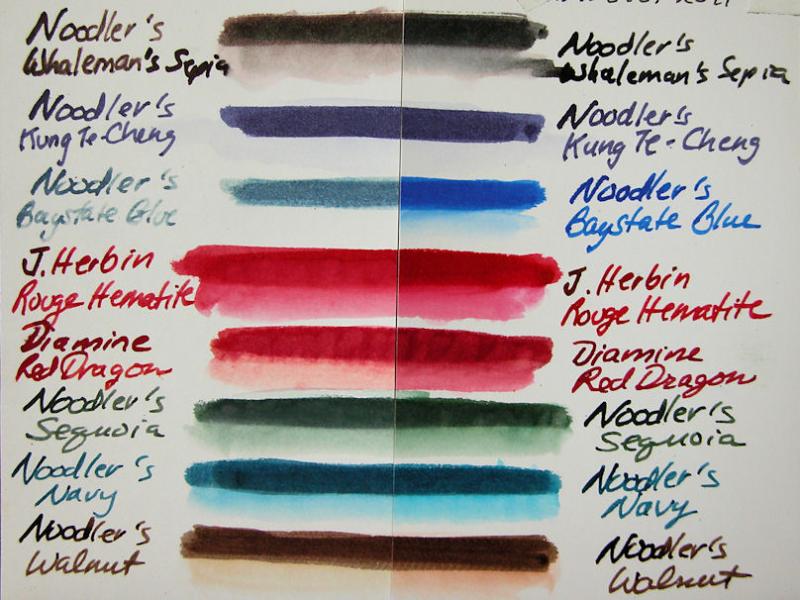 Noodler's
Whaleman's Sepia
Noodler's
Kung Te-Cheng
Noodler's
Baystate Blue
J. Herbin
Rouge Hematite
Diamine
Red Dragon
Noodler's
Sequoia
Noodler's
Navy
Noodler's
Walnut
Noodler's
Whaleman's Sepia
Noodler's
Kung Te-Cheng
Noodler's
Baystate Blue
J. Herbin
Rouge Hematite
Diamine
Red Dragon
Noodler's
Sequoia
Noodler's
Navy
Noodler's
Walnut